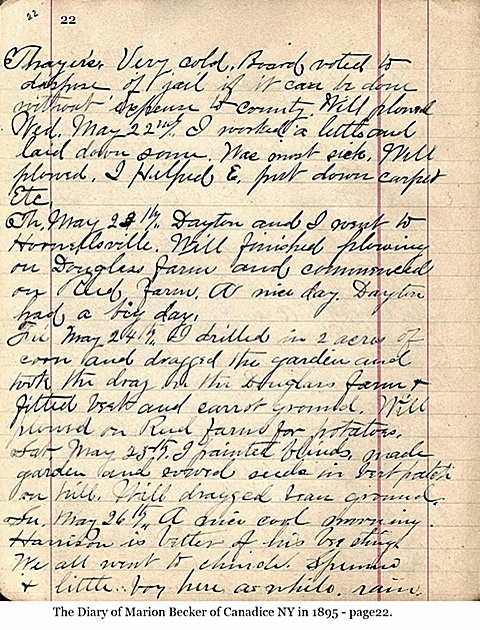 22
22
Thayer's. Very cold. Board voted to
dispose of jail if it can be done
without expense to county. Will plowed
Wed. May 22nd. I worked a little and
laid down some. Was most sick. Will
plowed. I Helped E. put down carpet
Etc.
Th. May 23th. Dayton and I went to
Hornellsville. Will finished plowing
on Douglass farm and commenced
on Reed farm. A nice day. Dayton
had a big day.
Fri May 24th. I drilled in 2 acres of
corn and dragged the garden and
took the drag on the Douglass farm &
fitted beet and carrot ground. Will
plowed on Reed farm for potatoes.
Sat. May 25th. I painted blinds, made
garden and sowed seeds in beet patch
on hill. Will dragged bean ground.
Su. May 26th. A nice cool morning.
Harrison is better of his bee sting.
We all went to church.
& little boy here a while. rain.
The Diary of Marion Becker of Canadice NY in 1895 - page22.